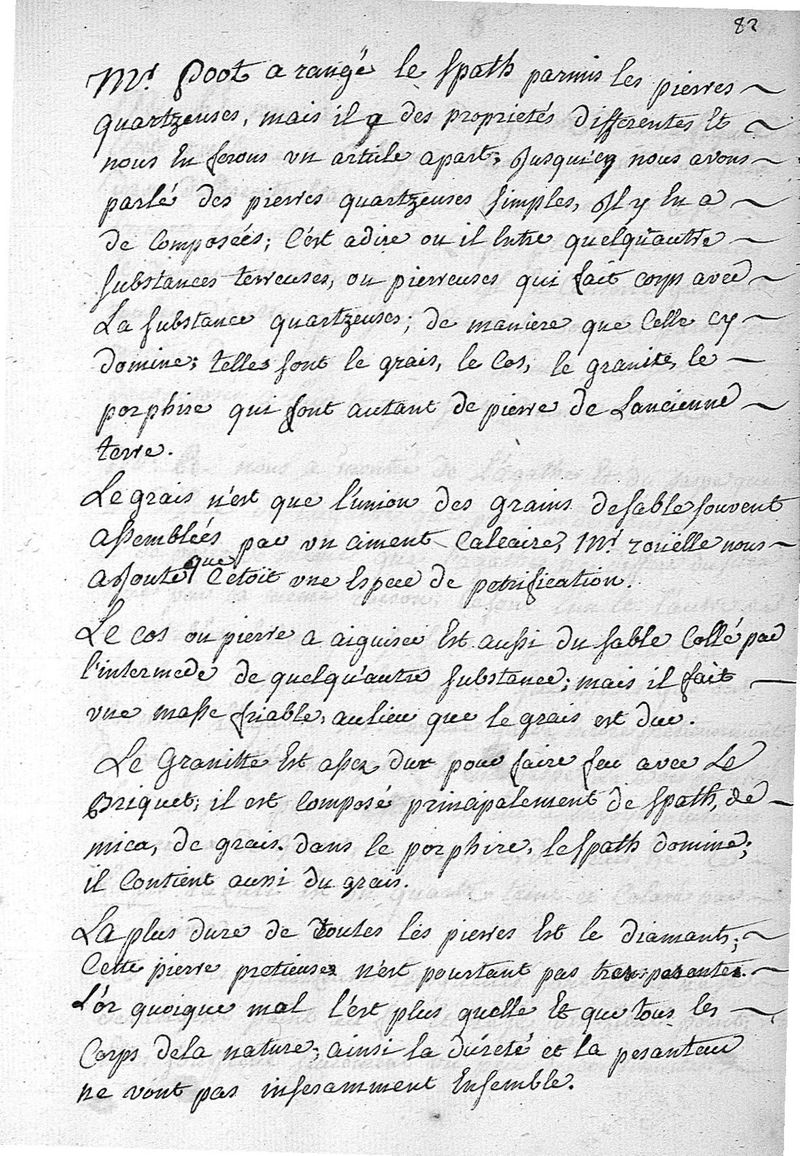 82
Mr. Poot a rangé le spath parmis les pierres
quartzeuses, mais il y des proprietés differentes Et
nous En ferons un article apart; Jusqu'icy nous avons
parlé des pierres quartzeuses simples, Il y En a
de Composées; C'est adire ou il Entre quelqu'autre
substances terreuses, ou pierreuses qui fait corps avec
La substance quartzeuse; de maniere que Celle cy
domine; telles sont le grais, le Cos, le granite, le
porphire qui sont autant de pierre de Lancienne
terre.
Le grais n'est que l'union des grains de sable souvent
assemblées par un ciment Calcaire, Mr. rouëlle nous
ajoute que C'etoit une Espece de petrification.
Le cos ou pierre a aiguiser Est aussi du sable Collé par
l'intermede de quelqu'autre substance; mais il fait
une masse friable, aulieu que le grais est dur.
Le Granitte Est assez dur pour faire feu avec Le
Briquet; il est Composé principalement de spath, de
mica, de grais. dans le porphire, le spath domine;
il Contient aussi du grais.
La plus dure de toutes les pierres Est le diamant;
Cette pierre pretieuse n'est pourtant pas
L'or quoique mal l'est plus quelle Et que tous les
Corps dela nature; ainsi la dúreté et la pesanteur
ne vont pas Ensemble.